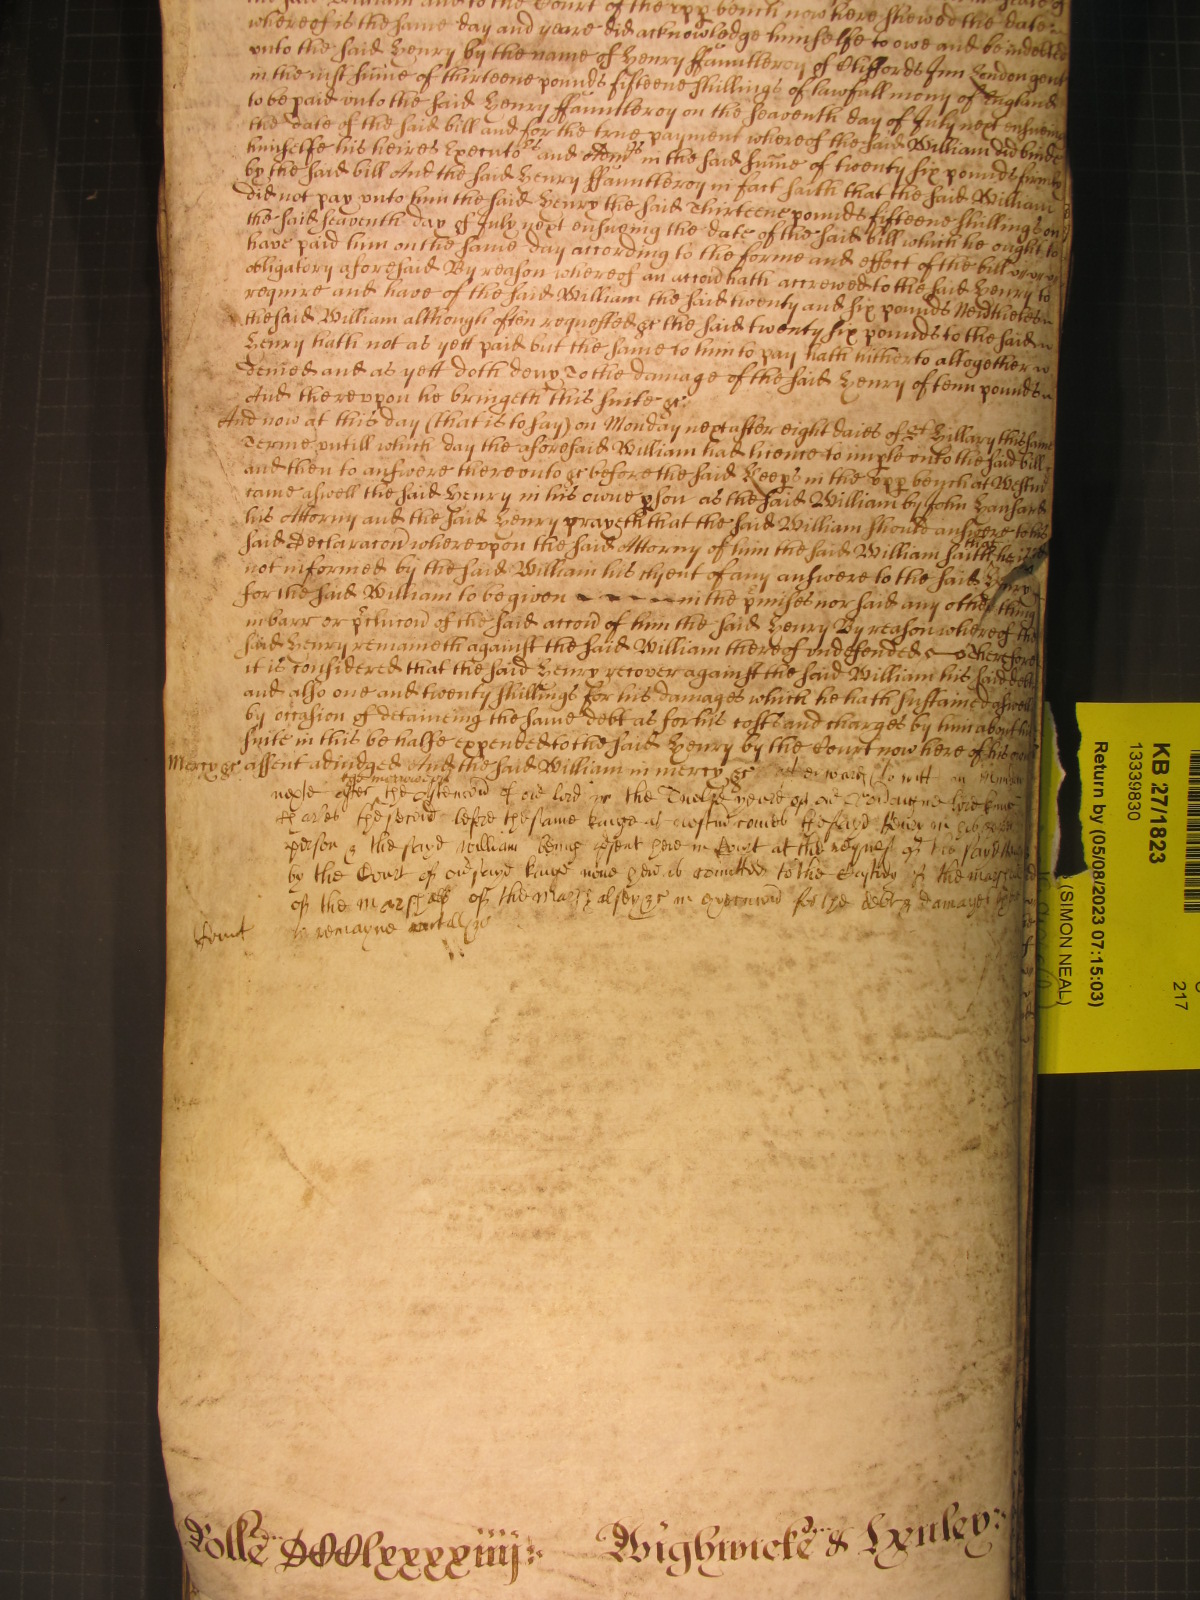 the said William and to the Court of the upp bench now here shewed the date
whereof is the same day and yeare did acknowledge himselfe to owe and be indebted
unto the said Henry by the name of Henry ffauntleroy of Cliffords Inn London gent
in the just sume of thirteene pounds fifteene shillings of lawfull mony of England
to be paid unto the said Henry ffauntleroy on the seaventh day of July next ensueing
the date of the said bill and for the true payment whereof the said William did binde
himselfe his heires Executors and Admrs in the said sume of twenty six pounds
by the said bill And the said Henry ffauntleroy in fact saith that the said William
did not pay unto him the said Henry the said Thirteene pounds fifteene shillings on
the said seaventh day of July next ensueing the date of the said bill which he ought to
have paid him on the same day according to the forme and effect of the bill
obligatory aforesaid By reason whereof an accon hath accrewed to the said Henry to
require and have of the said William the said twenty and six pounds Nevertheles
the said William although often requested &c the said twenty six pounds to the said
Henry hath not as yett paid but the same to him to pay hath hitherto altogether
denied and as yett doth deny To the damage of the said Henry of tenn pounds
And thereupon he bringeth this suite &c
And now at this day (that is to say) on Monday next after eight daies of St Hillary this same
Terme untill which day the aforesaid William had licence to imple unto the said bill
and then to answere thereunto &c before the said Keeps in the upp bench at Westmr
came aswell the said Henry in his owne pson as the said William by John
his Attorny and the said Henry prayeth that the said William should answere to his
said Declaracon whereupon the said Attorny of him the said William saith that he is
not informed by the said William his clyent of any answere to the said Henry
for the said William to be given in the pmises nor said any other thing
in barr or pclucon of the said accon of him the said Henry By reason whereof the
said Henry remaineth against the said William thereof undefended Wherefore
it is considered that the said Henry recover against the said William his said debt
and also one and twenty shillings for his damages which he hath sustained aswell
by occasion of detaineing the same debt as for his costs and charges by him about his
suite in this behalfe expended to the said Henry by the Court now here of his owne
Mercy &c assent adiudged And the said William in mercy &c afterwards to witt on
next after the of our lord in the Twelfe yeere of our
Charles the second before the same kinge att comes the sayd Henry in his
person & the sayd William being psent here in Court at the request of the sayd
by the Court of our sayd kinge nowe here is comitted to the Custody of the
of the Marshall of the Marshalsey &c in execucon for the debt & damages
to remayne untill &c
Rolle DCClxxxxiiij Wightwicke & Henley
KB 27/1823
13339830
Return by (05/08/2023 07:15:03)
(SIMON NEAL)
217